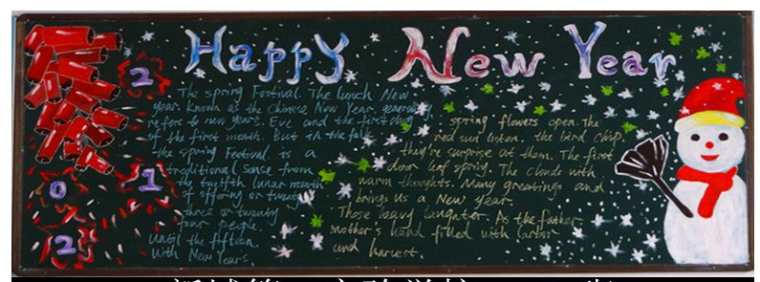 Happy New Year
2
0
1
2
The spring Festival. The lunch New
year known as the Chinese New Year
refers to new years. Eve and the first day
of the first month. But in the folk
the spring Festival is a
traditional sense from
the twelfth lunar month
of offering or twenty
three or twenty
four people.
Until the fifteen.
With New Years.
spring flowers open. The
red sun listen. the bird chip.
they're surprise at them. The first
door leaf spring. The clouds with
warm thoughts. Many greetings and
brings us a New year.
Those heavy laughter. As the father
mother's hand filled with labor
and harvest.